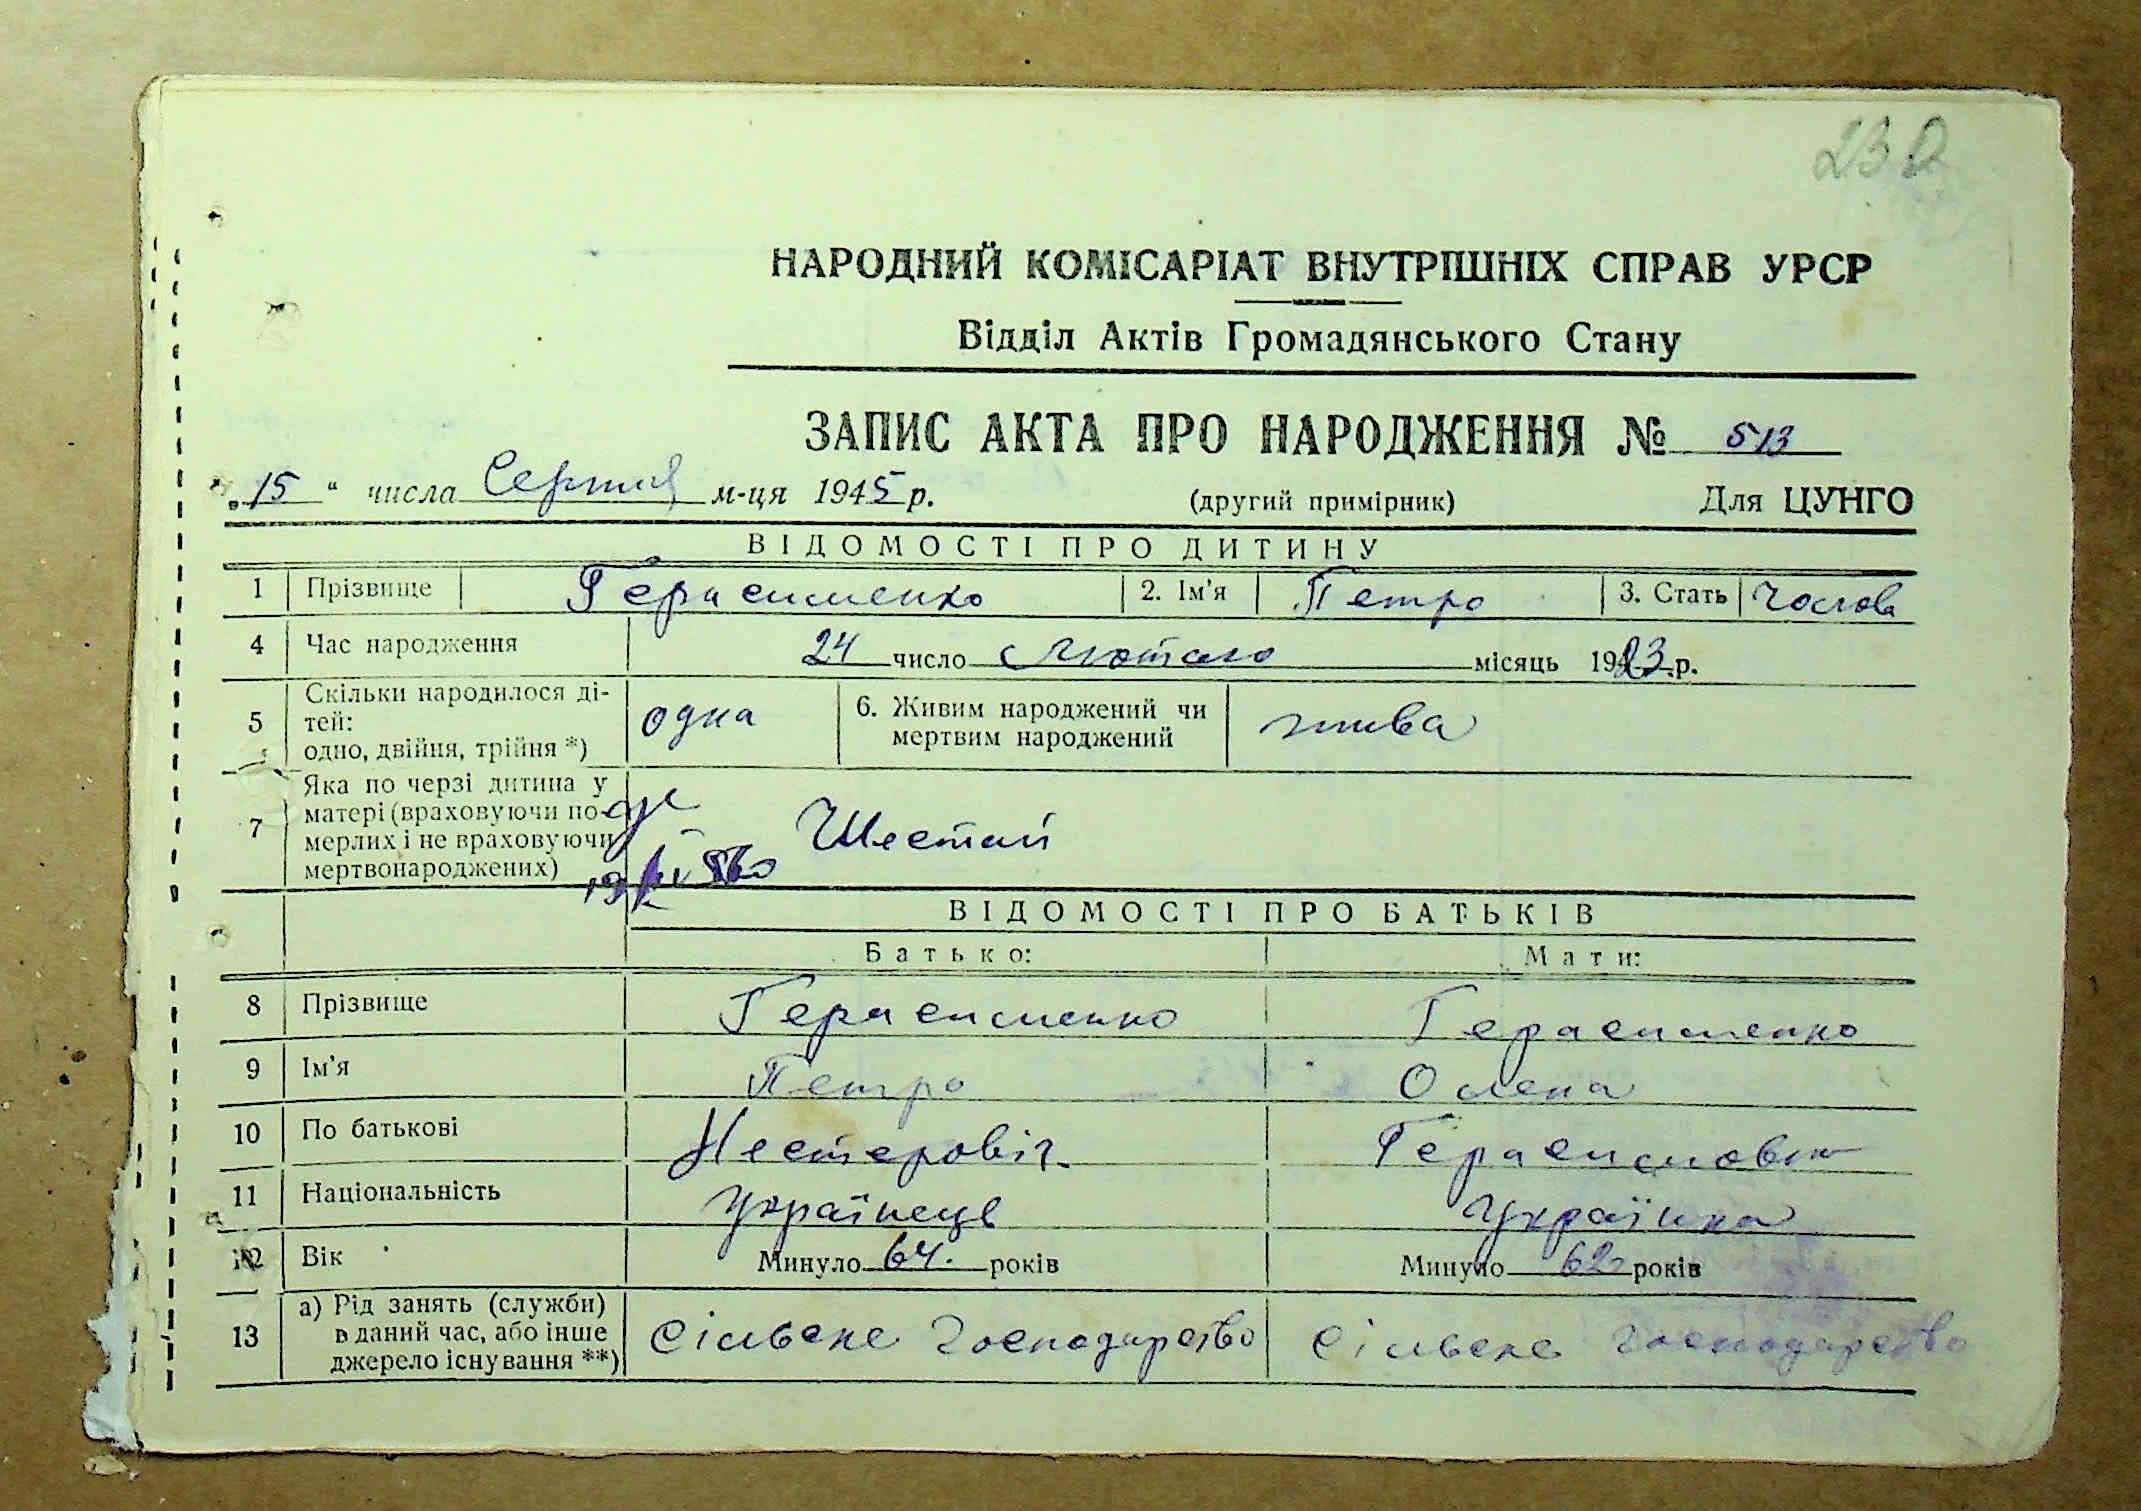 230
НАРОДНИЙ КОМІСАРІАТ ВНУТРІШНІХ СПРАВ УРСР
Відділ Актів Громадянського Стану
ЗАПИС АКТА ПРО НАРОДЖЕННЯ № 513
„15“ числа Серпня м-ця 1945 р. (другий примірник) Для ЦУНГО
ВІДОМОСТІ ПРО ДИТИНУ
1 Прізвище Герасименко 2. Ім'я Петро 3. Стать Чолова
4 Час народження 24 число Лютого місяць 1923 р.
5 Скільки народилося ді-
тей:
одно, двійня, трійня *) одна 6. Живим народжений чи
мертвим народжений жива
7 Яка по черзі дитина у
матері (враховуючи по-
мерлих і не враховуючи
мертвонароджених) Шестай
ВІДОМОСТІ ПРО БАТЬКІВ
Батько: Мати:
8 Прізвище Герасименко Герасименко
9 Ім'я Петро Олена
10 По батькові Нестерович Герасимовна
11 Національність Українець Українка
12 Вік Минуло 64. років Минуло 62 років
13 а) Рід занять (служби)
в даний час, або інше
джерело існування **) Сільске господарство Сільске господарство